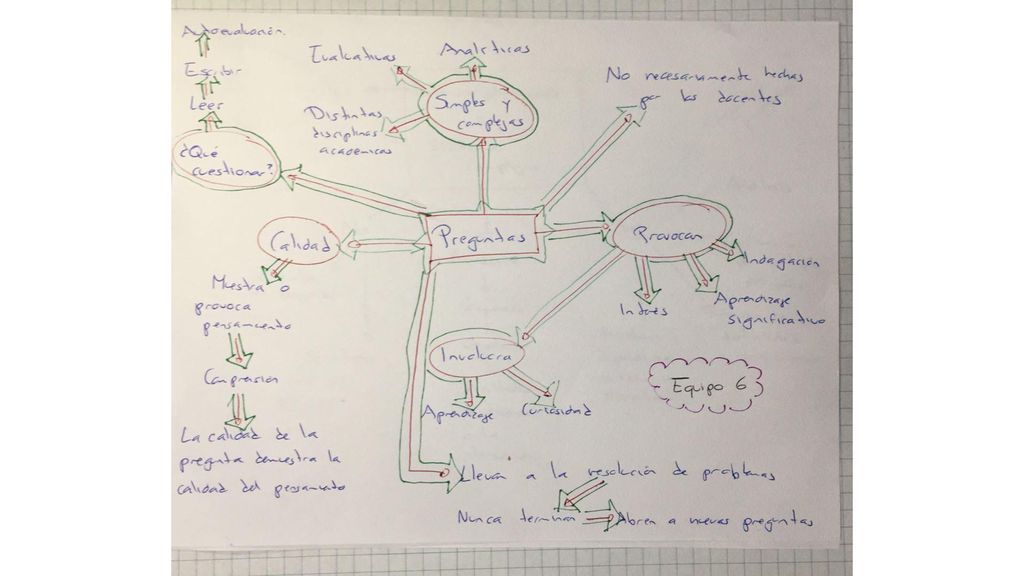 Autoevaluación.
Escribir
Leer
¿Qué
cuestionar?
Evaluativas
Analíticas
Distintas
disciplinas
académicas
Simples y
complejas
No necesariamente hechas
por los docentes
Preguntas
Calidad
Muestra o
provoca
pensamiento
Comprensión
La calidad de la
pregunta demuestra la
calidad del pensamiento
Provocan
Indagación
Aprendizaje
significativo
Interés
Involucra
Aprendizaje
Curiosidad
Equipo 6
Llevan a la resolución de problemas
Nunca terminan
Abren a nuevas preguntas